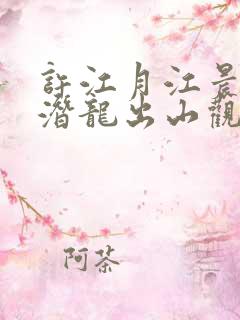 許江月江晨
潛龍出山觀
阿茶